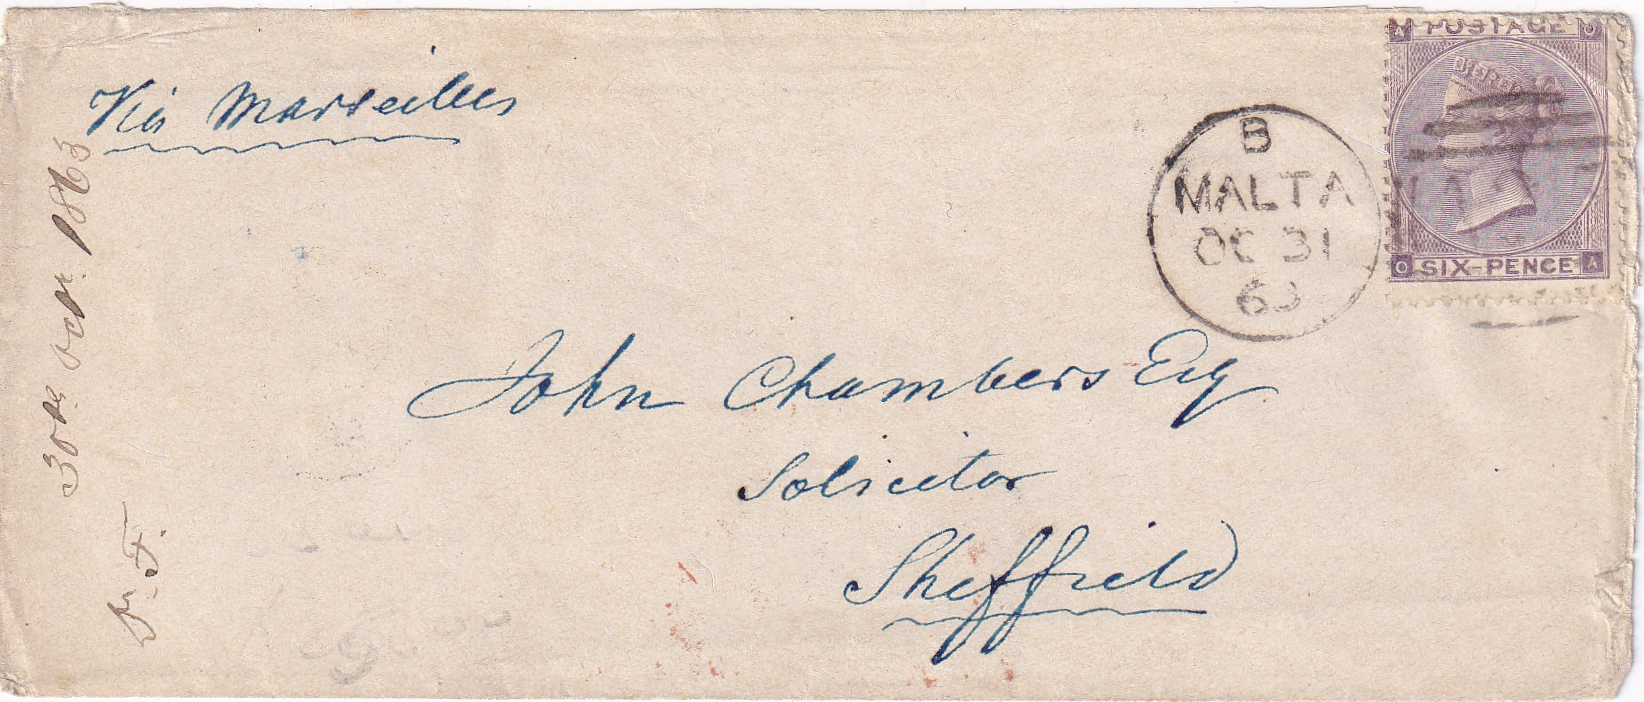 Via Marseilles
30th Octr. 1863
John Chambers Esq
Solicitor
Sheffield
B
MALTA
OC 31
63
A POSTAGE O
O SIX-PENCE A